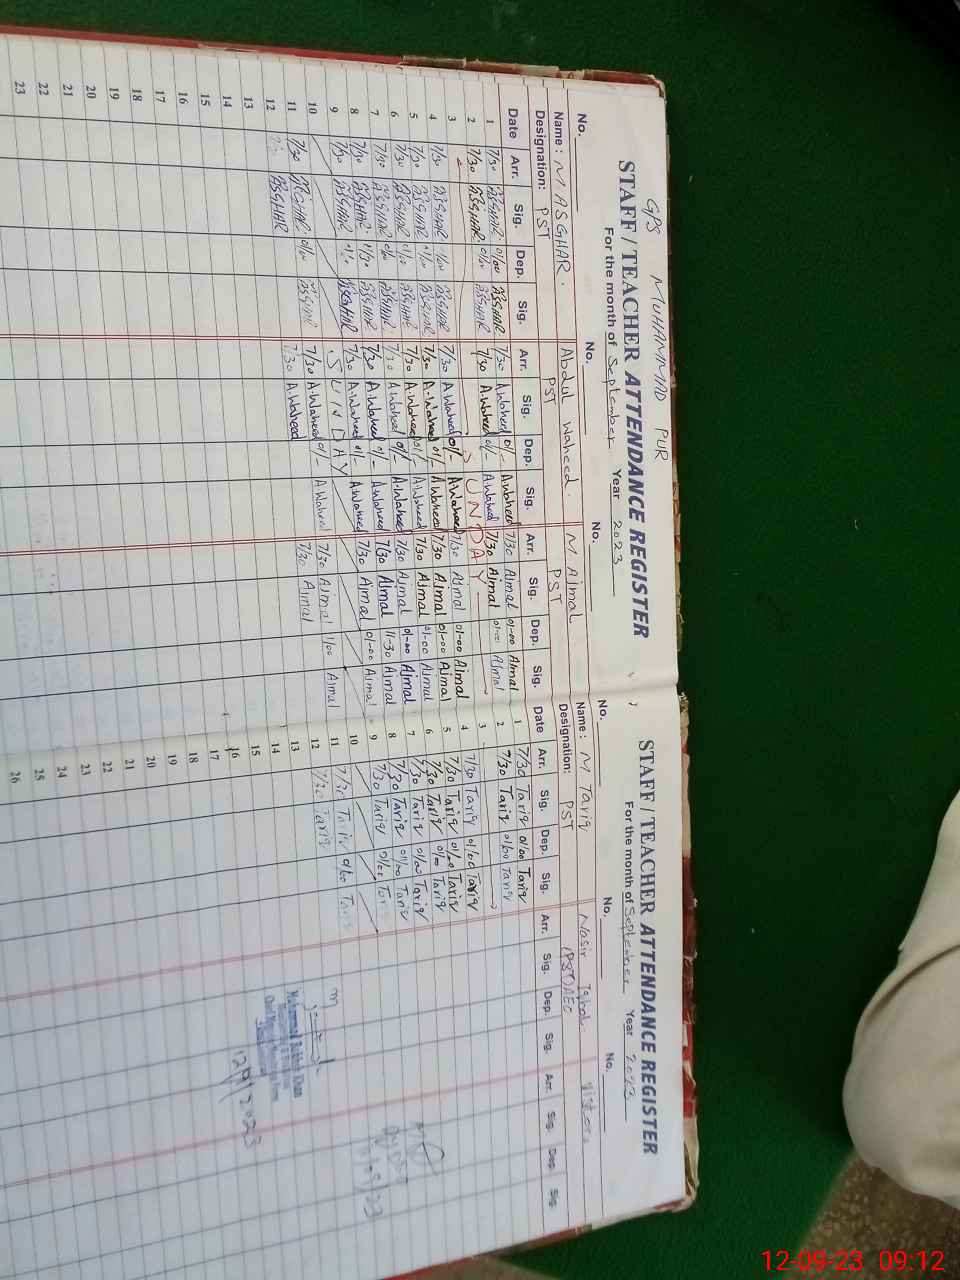 GPS MUHAMMAD PUR
STAFF / TEACHER ATTENDANCE REGISTER
For the month of September Year 2023
No. No. No.
Name: M ASGHAR. Abdul Waheed. M Ajmal
Designation: PST PST PST
Date Arr. Sig. Dep. Sig. Arr. Sig. Dep. Sig. Arr. Sig. Dep. Sig.
1 7/30 ASGHAR 01/00 ASGHAR 7/30 A.Waheed 01/- A.Waheed 7/30 Ajmal 01-00 Ajmal
2 7/30 ASGHAR 01/00 ASGHAR 7/30 A.Waheed 01/- A.Waheed 7/30 Ajmal 01-00 Ajmal
3 SUNDAY
4 7/30 ASGHAR 1/00 ASGHAR 7/30 A.Waheed 01/- A.Waheed 7/30 Ajmal 01-00 Ajmal
5 7/30 ASGHAR 01/00 ASGHAR 7/30 A.Waheed 01/- A.Waheed 7/30 Ajmal 01-00 Ajmal
6 7/30 ASGHAR 01/00 ASGHAR 7/30 A.Waheed 01/- A.Waheed 7/30 Ajmal 01-00 Ajmal
7 7/30 ASGHAR ASGHAR 7/30 A.Waheed 01/- A.Waheed 7/30 Ajmal 01-00 Ajmal
8 7/30 ASGHAR 11/30 ASGHAR 7/30 A.Waheed A.Waheed 7/30 Ajmal 11-30 Ajmal
9 7/30 ASGHAR ASGHAR 7/30 A.Waheed 01/- A.Waheed 7/30 Ajmal 01-00 Ajmal
10 SUNDAY
11 7/30 ASGHAR 01/00 ASGHAR 7/30 A.Waheed 01/- A.Waheed 7/30 Ajmal 1/00 Ajmal
12 ASGHAR 7/30 A.Waheed 7/30 Ajmal
13
14
15
16
17
18
19
20
21
22
23
STAFF / TEACHER ATTENDANCE REGISTER
For the month of September Year 2023
No. No. No.
Name: M Tariq Nasir Iqbal
Designation: PST
Date Arr. Sig. Dep. Sig. Arr. Sig. Dep. Sig. Arr. Sig. Dep. Sig.
1 7/30 Tariq 01/00 Tariq
2 7/30 Tariq 01/00 Tariq
3
4 7/30 Tariq 01/00 Tariq
5 7/30 Tariq 01/00 Tariq
6 7/30 Tariq 01/00 Tariq
7 7/30 Tariq 01/00 Tariq
8 7/30 Tariq 01/00 Tariq
9 7/30 Tariq 01/00 Tariq
10
11 7/30 Tariq 01/00 Tariq
12 7/30 Tariq
13
14
15
16
17
18
19
20
21
22
23
24
25
26
12-09-23 09:12